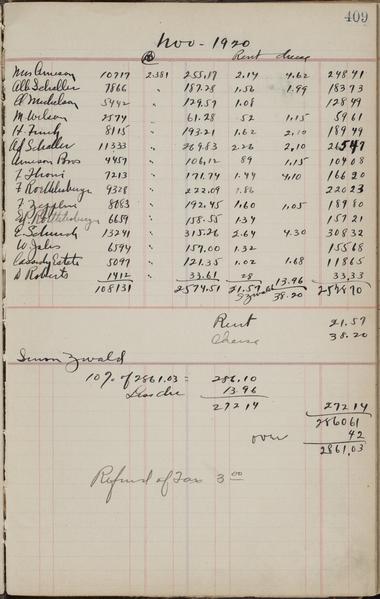 409
Nov - 1920
@ Rent cheese
Mrs Amison 10717 2.381 255.17 2.14 4.62 248 41
Alb Scheller 7866 " 187.28 1.56 1.99 183 73
A Michelson 5442 " 129.57 1.08 128 49
M. Wilson 2574 " 61.28 52 1.15 59 61
H. Funk 8115 " 193.21 1.62 2.10 189 49
Af Scheller 11333 " 269.83 2.26 2.10 265 47
Amison Bros 4457 " 106.12 89 1.15 104 08
F Thoni 7213 " 171.74 1.44 4.10 166 20
F Rothlisburger 9328 " 222.09 1.86 220 23
F Zigglin 8083 " 192.45 1.60 1.05 189 80
Rothlisburger 6659 " 158.55 1.34 157 21
E. Schmidy 13241 " 315.26 2.64 4.30 308 32
W Jules 6594 " 157.00 1.32 155 68
Cassidy Estate 5097 " 121.35 1.02 1.68 118 65
D Roberts 1412 " 33.61 28 13.96 33,33
108131 2574.51 21.57 Zwald 38.20
Rent 21.57
Cheese 38.20
Simon Zwald
10% of 2861.03 = 286.10
Less che 13.96
272 14 272 14
2860 61
over 42
2861.03
Refund of Tax 3 00